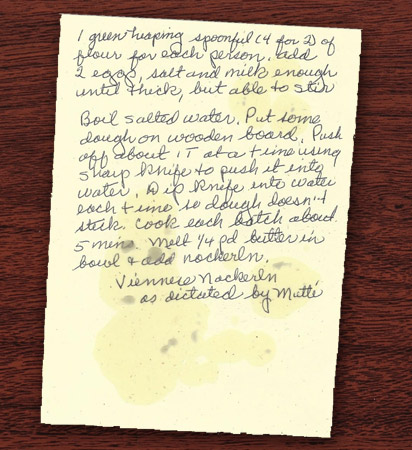 1 green heaping spoonful (4 for 2) of
flour for each person. add
2 eggs, salt and milk enough
until thick, but able to stir
Boil salted water. Put some
dough on wooden board. Push
off about 1T at a time using
sharp knife to push it into
water. Dip knife into water
each time so dough doesn't
stick. Cook each batch about
5 min. Melt 1/4 pd butter in
bowl & add nockerln.
Viennese Nockerln
as dictated by Mutti